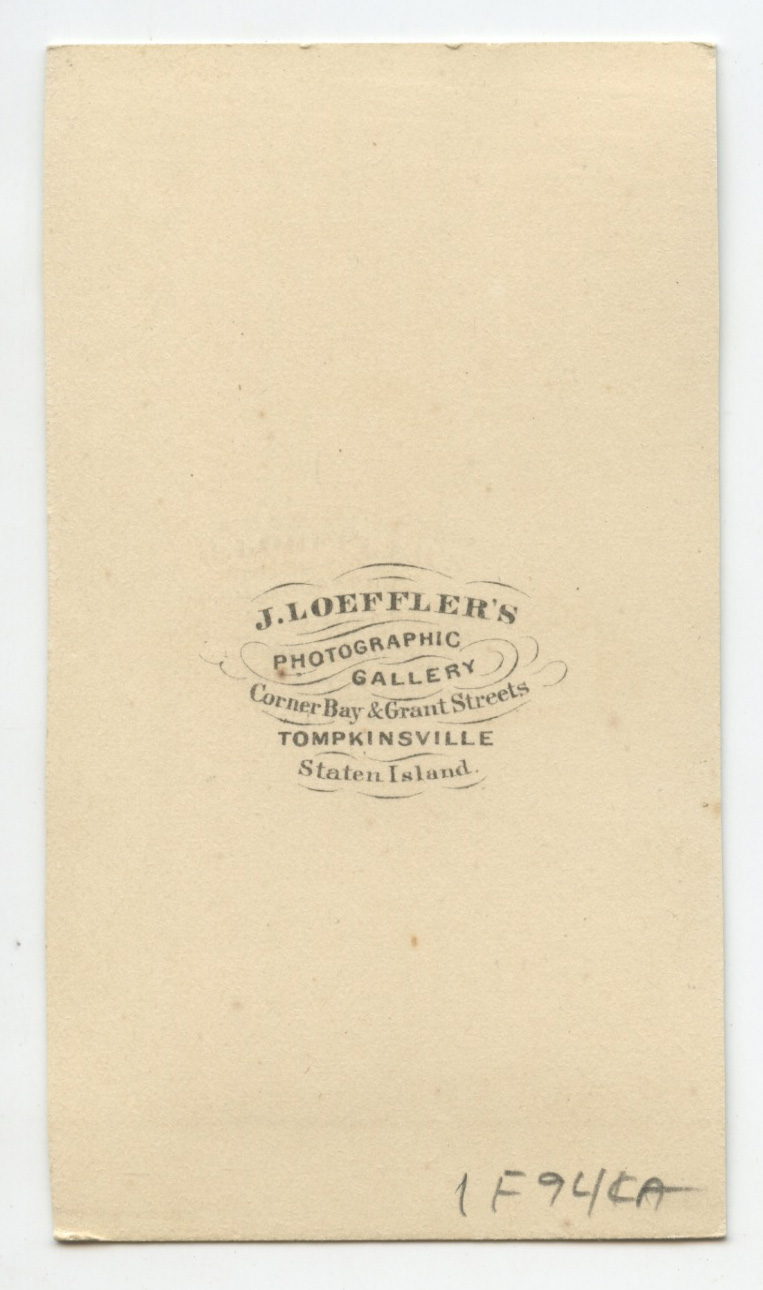 J. LOEFFLER'S
PHOTOGRAPHIC
GALLERY
Corner Bay & Grant Streets
TOMPKINSVILLE
Staten Island.
1 F94CA